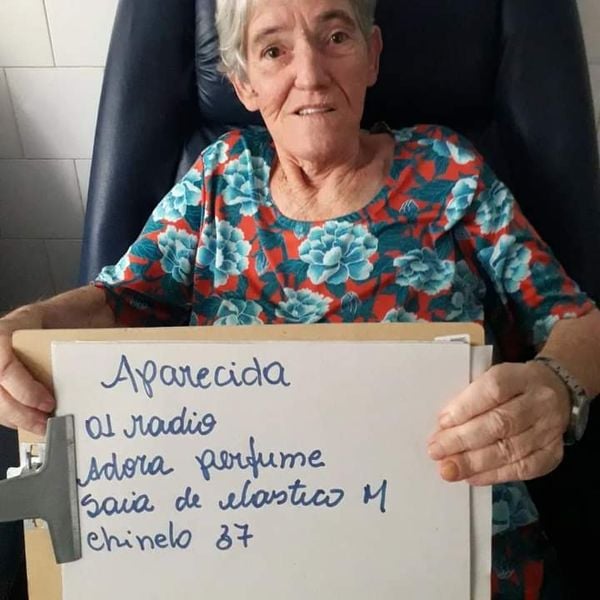 Aparecida
01 radio
Adora perfume
Saia de elastico M
chinelo 37